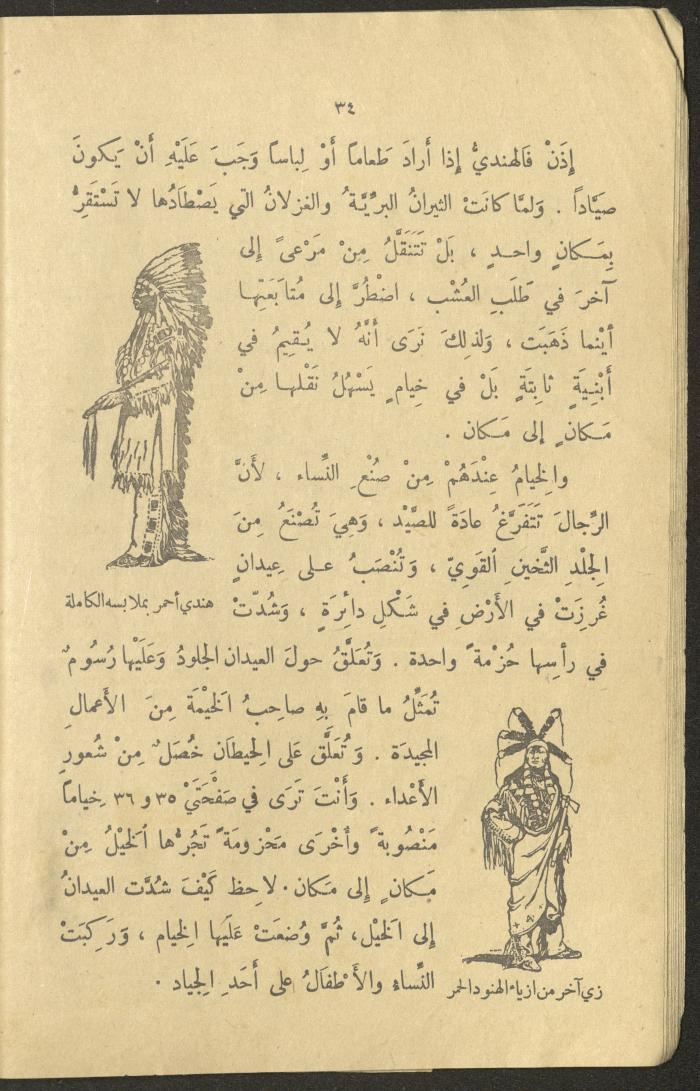 ٣٤
إِذَنْ فَالهنديُّ إِذا أَرادَ طَعاماً أَوْ لِباساً وَجَبَ عَلَيْهِ أَنْ يَكونَ
صيَّاداً . وَلمَّا كانَتْ الثيرانُ البرِّيَّةُ والغزلانُ التي يَصْطادُها لا تَسْتَقِرُّ
بِمَكانٍ واحدٍ ، بَلْ تَتَنَقَّلُ مِنْ مَرْعىً إِلى
آخرَ في طَلَبِ العُشْب ، اضْطُرَّ إِلى مُتابَعَتِها
أَيْنما ذَهَبَت ، وَلذلِكَ نَرَى أَنَّهُ لا يُقيمُ في
أَبْنِيَةٍ ثابِتَةٍ بَلْ في خِيامٍ يَسْهُلُ نَقْلها مِنْ
مَكانٍ إِلى مَكان .
والِخيامُ عِنْدَهُمْ مِنْ صُنْعِ النِّساء ، لأَنَّ
الرِّجالَ تَتَفَرَّغُ عادَةً للصَّيْد ، وَهِيَ تُصْنَعُ مِنَ
الِجلْدِ الثَّخينِ اْلقَوِيّ ، وَتُنْصَبُ عـلى عِيدانٍ
غُرِزَتْ في الأَرْضِ في شَكْلِ دائِرَةٍ ، وَشُدّتْ
هندي أحمر بملابسه الكاملة
في رأسِها حُزْمةً واحدة . وَتُعَلَّقُ حولَ العيدان الجلودُ وَعَلَيْها رُسُومٌ
تُمَثِّلُ ما قامَ بِهِ صاحِبُ اَلخيْمَة مِنَ الأَعمالِ
المجيدَة . وَتُعَلَّق عَلى الِحيطَان خُصَلٌ مِنْ شُعورِ
الأَعْداء . وَأَنْتَ تَرَى في صَفْحَتَيْ ٣٥ و ٣٦ خِياماً
مَنْصُوبةً وأُخْرَى مَحْزومَةً تَجُرُّها اْلخَيْلُ مِنْ
مَكانٍ إِلى مَكان . لاحِظ كَيْفَ شُدَّت العيدانُ
إِلى اَلخيْل ، ثُمَّ وُضعَتْ عَلَيها الِخيام ، وَرَكِبَتْ
النِّساءِ والأَطْفالُ على أَحَدِ الِجياد .
زي آخر من ازياء الهنود الحمر